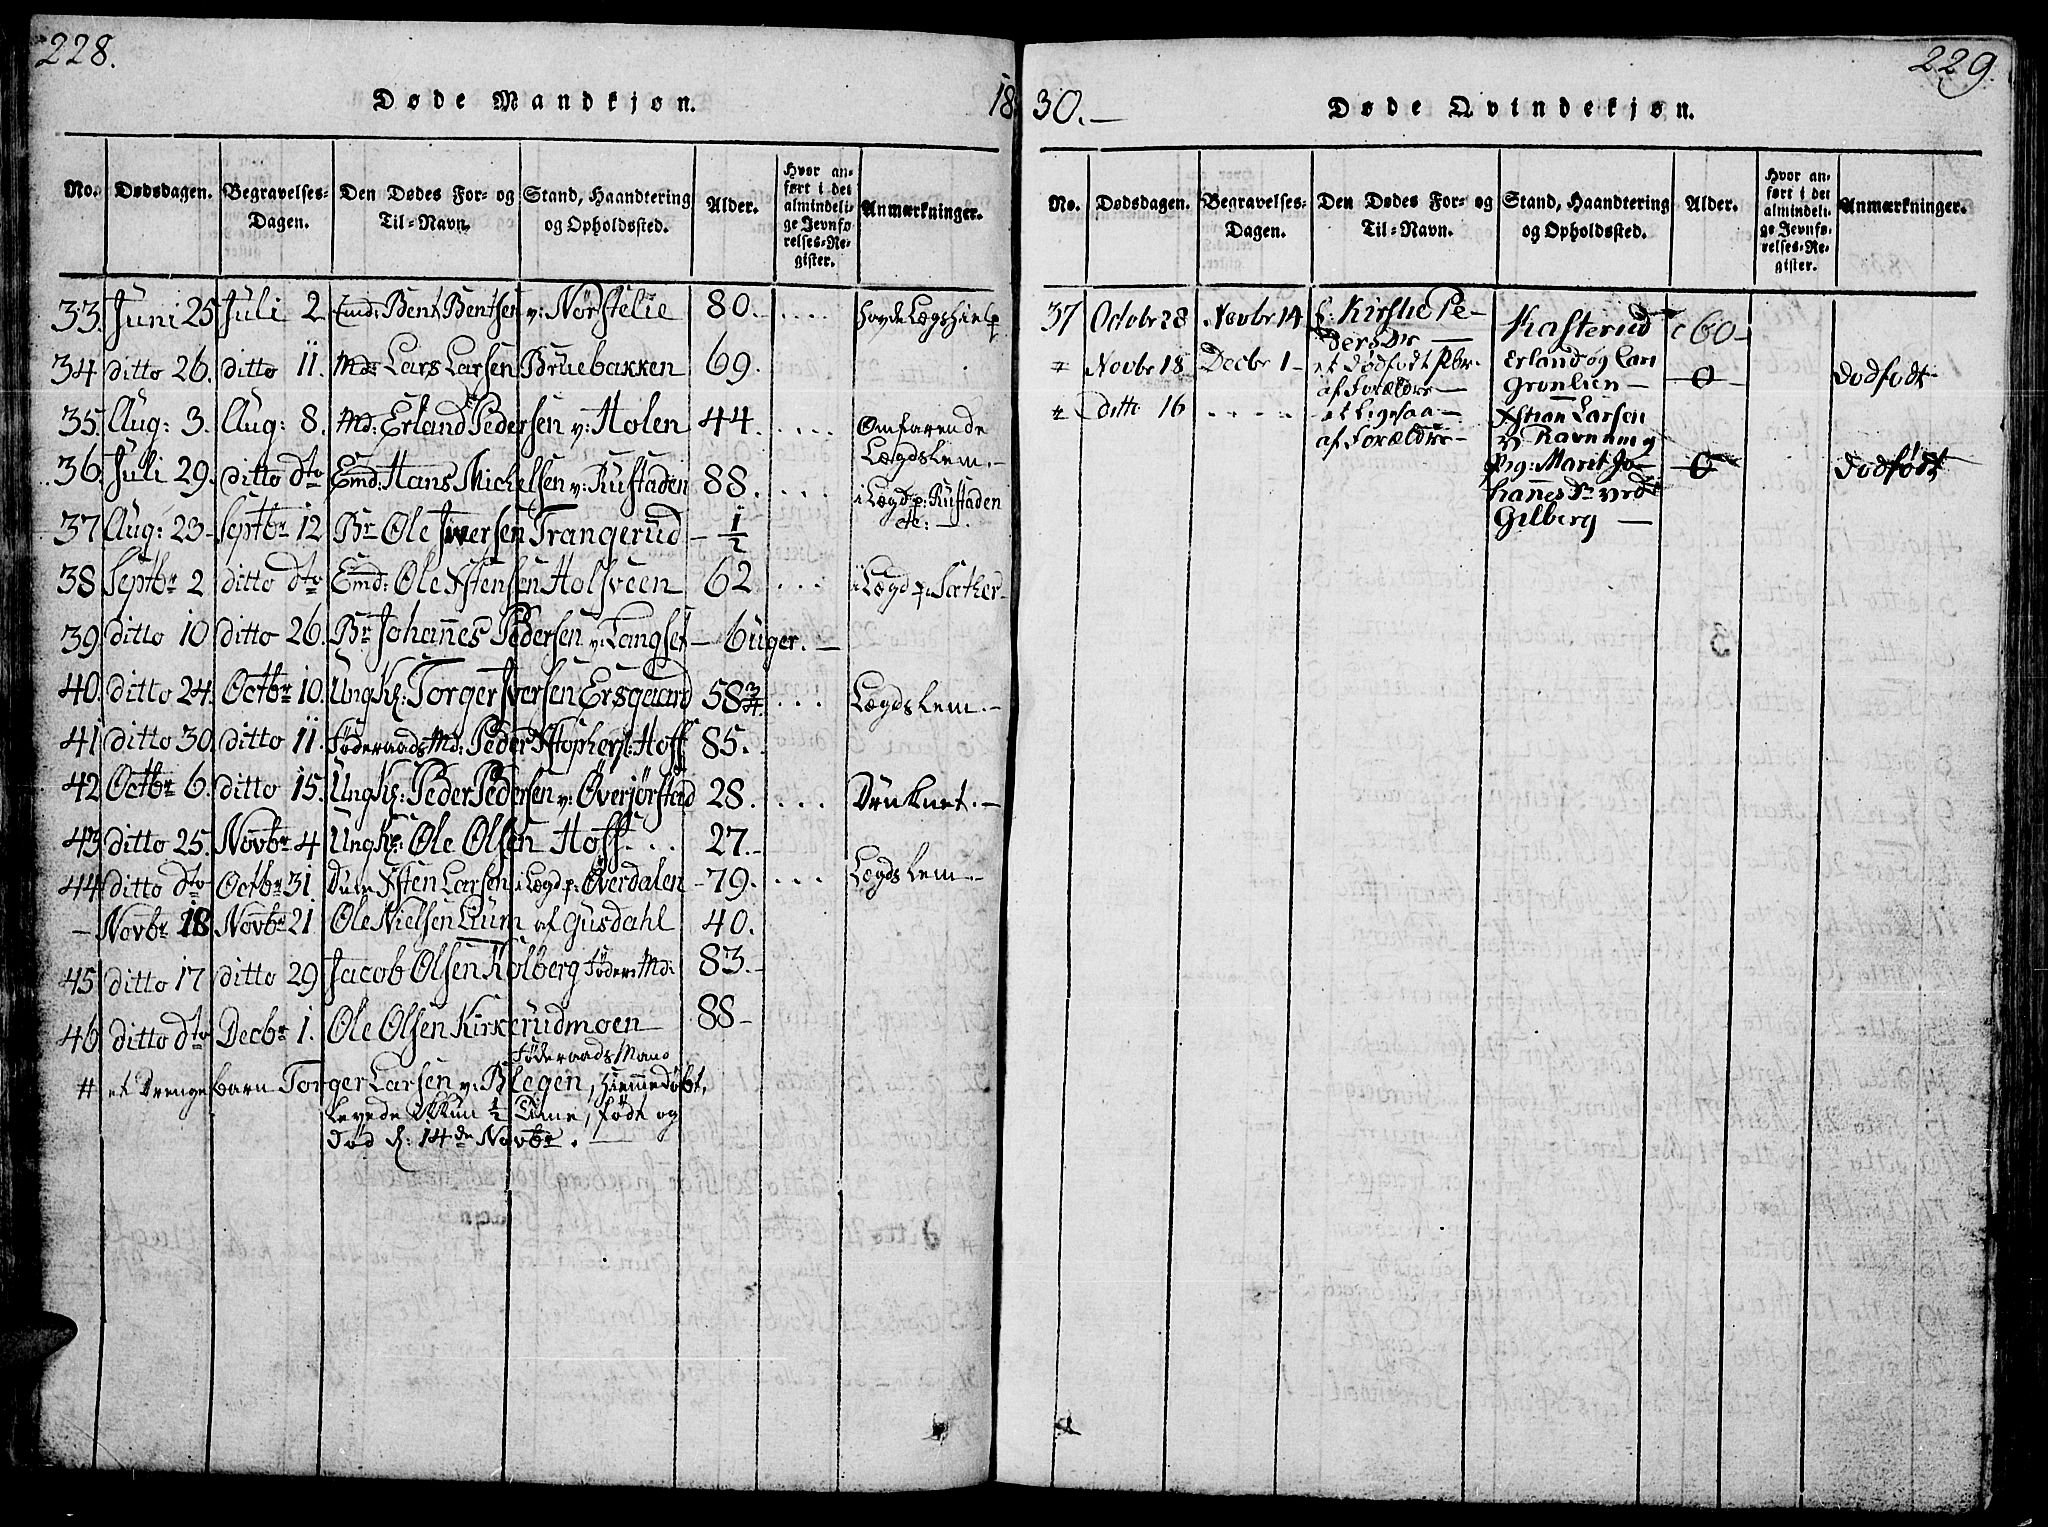 228.
Døde Mandkjøn.
18
No. Dødsdagen. Begravelses-Dagen. Den Dødes For- og Til-Navn. Stand, Haandtering og Opholdssted. Alder. Hvor anført i det almindelige Jevnførelses-Register. Anmærkninger.
33. Juni 25 Juli 2 Emd: Bent Bentsen v: Nørstelie 80. .... 
34 ditto 26. ditto 11. Md: Lars Larsen Bruebakken 69.
35. Aug: 3. Aug: 8. Md: Erland Pedersen v: Holen 44. .... Omfarende Lægdslem.-
36. Juli 29. ditto dto Emd: Hans Mickelsen v: Rustaden 88. .... i Lægd p: Rustaden
37 Aug: 23- Septbr 12 Br Ole Iversen Trangerud - 1/2
38 Septbr 2 ditto dto Emd: Ole Xstensen Holsveen 62 ... i Lægd p: Sæther-
39 ditto 10 ditto 26. Br Johannes Pedersen v: Langset - 6 uger.-
40. ditto 24. Octbr 10. Ung K: Torger Iversen Ersgaard 58 3/4. ... Lægdslem.-
41 ditto 30. ditto 11. Føderaads Md: Peder Xstophers: Hoff 85.
42 Octbr 6. ditto 15. Ung K: Peder Pedersen v: Överjørstad 28. ... Druknet.-
43 ditto 25. Novbr 4 Ung K: Ole Olsen Hoff ... 27.-
44 ditto dto Octbr 31 Xsten Larsen i Lægd p: Överdalen - 79. ... Lægdslem.-
- Novbr 18 Novbr 21 Ole Nielsen Lium af Gusdahl 40.
45 ditto 17 ditto 29 Jacob Olsen Kolberg føder: Md: 83.-
46 ditto dto Decbr 1. Ole Olsen Kirkerudmoen 88-
Føderaads Mand
# et Drengebarn Torger Larsen v: Blegen, hiemmedøbt,
levede ikkun 1/2 Time, født og
død d: 14de Novbr. -
229.
30.-
Døde Qvindekjøn.
No. Dødsdagen. Begravelses-Dagen. Den Dødes For- og Til-Navn. Stand, Haandtering og Opholdssted. Alder. Hvor anført i det almindelige Jevnførelses-Register. Anmærkninger.
37 Octobr 28 Novbr 14 Kirstie Pedersdr - Kasterud 60-
# Novbr 18 Decbr 1- et dødfødt af Forældre - Erland og Cari Grønlien - 0 dødfødt
# ditto 16 .... et ligesaa - af Forældre - Xstian Larsen v: Ravnum og Pig: Marit Johannesdr ved Gilberg - 0 dødfødt